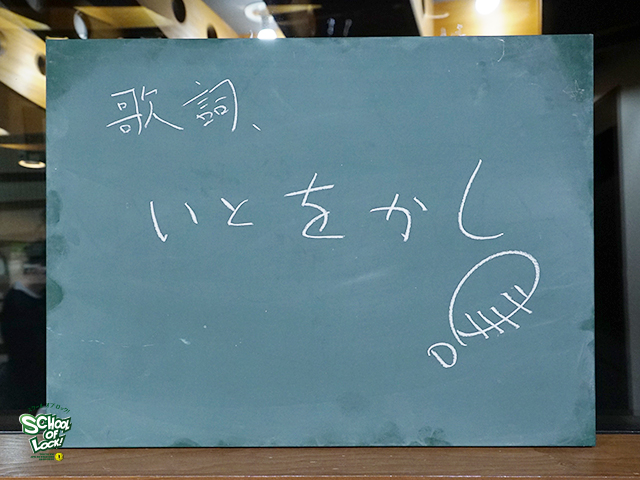 歌詞、
いとをかし
SCHOOL
OF
LOCK!